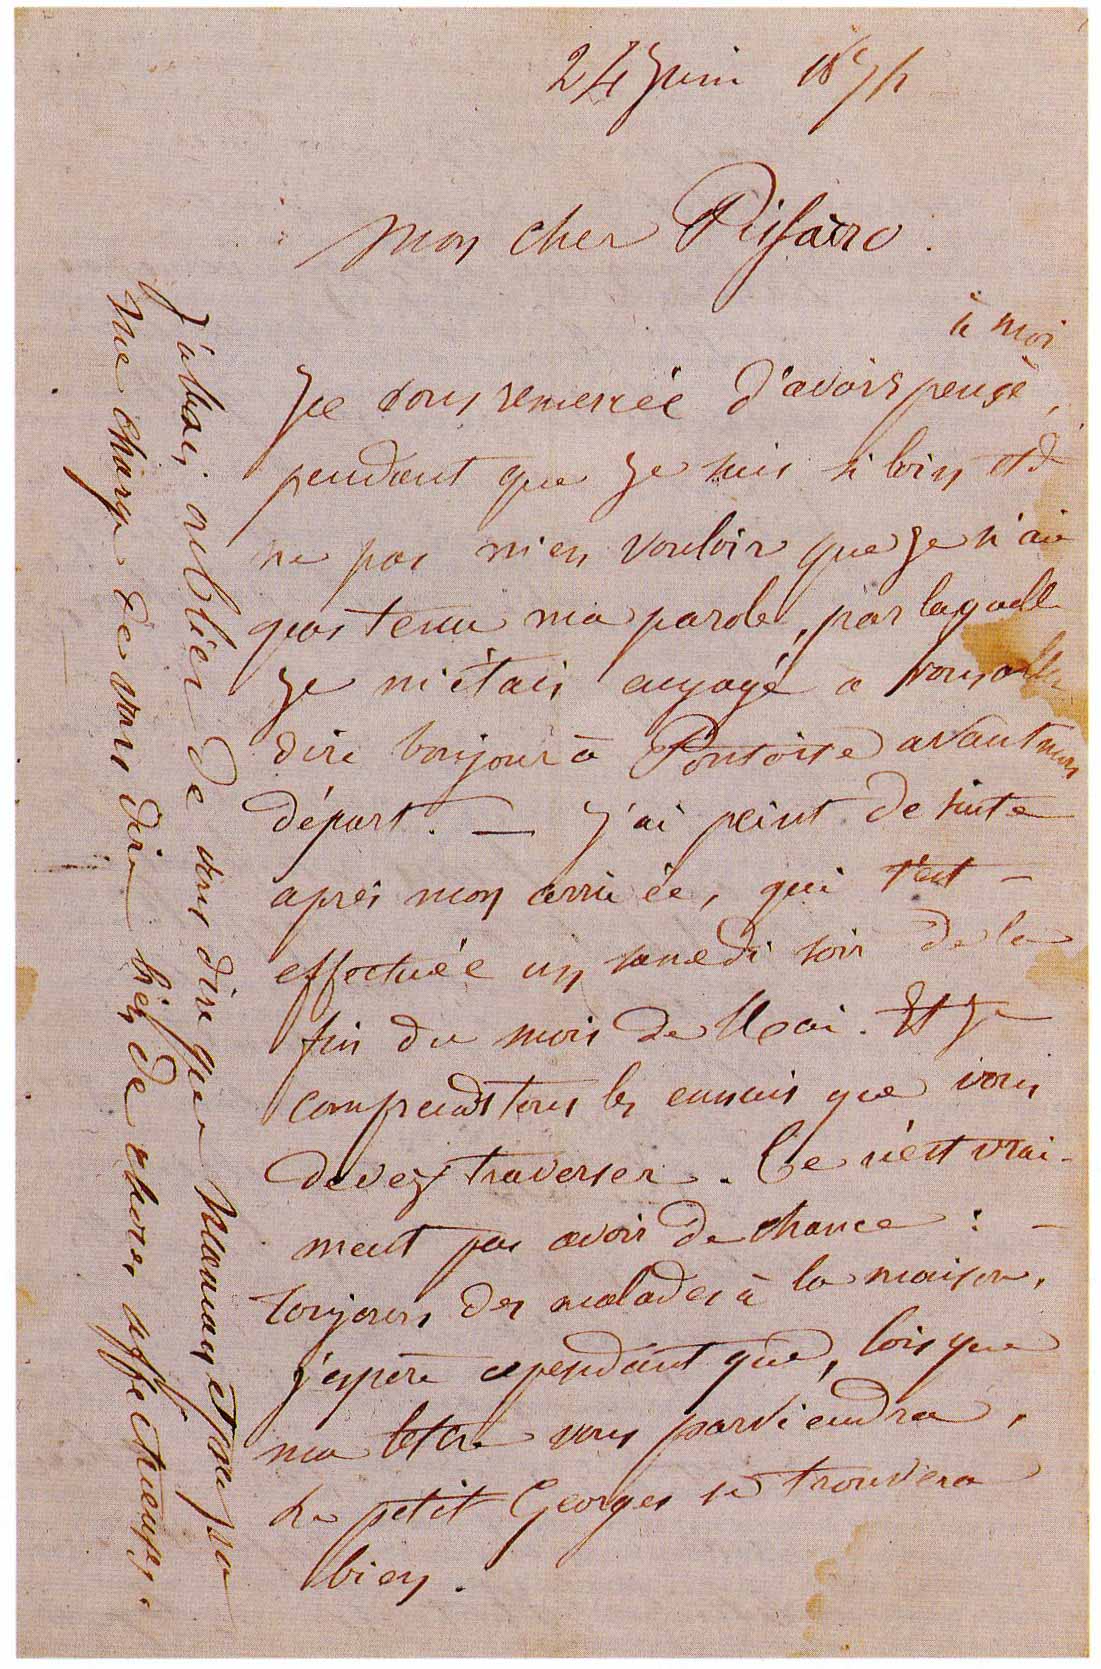 24 Juin 1874
Mon cher Pissarro.
à moi
Je vous remercie d'avoir pensé,
pendant que je suis si loin et d
ne pas m'en vouloir que je n'ai
pas tenu ma parole, par laquelle
je m'étais engagé à vous aller
dire bonjour à Pontoise avant mon
départ. — J'ai peint de suite
après mon arrivée, qui s'est —
effectuée un samedi soir de la
fin du mois de Mai. Et je
comprends tous les ennuis que vous
devez traverser. Ce n'est vrai-
ment pas avoir de chance : —
toujours des malades à la maison.
j'espère cependant que, lorsque
ma lettre vous parviendra,
le petit Georges se trouvera
bien.
J'allais oublier de vous dire que Maman et mon pa
me charge de vous dire bien de choses affectueuses.